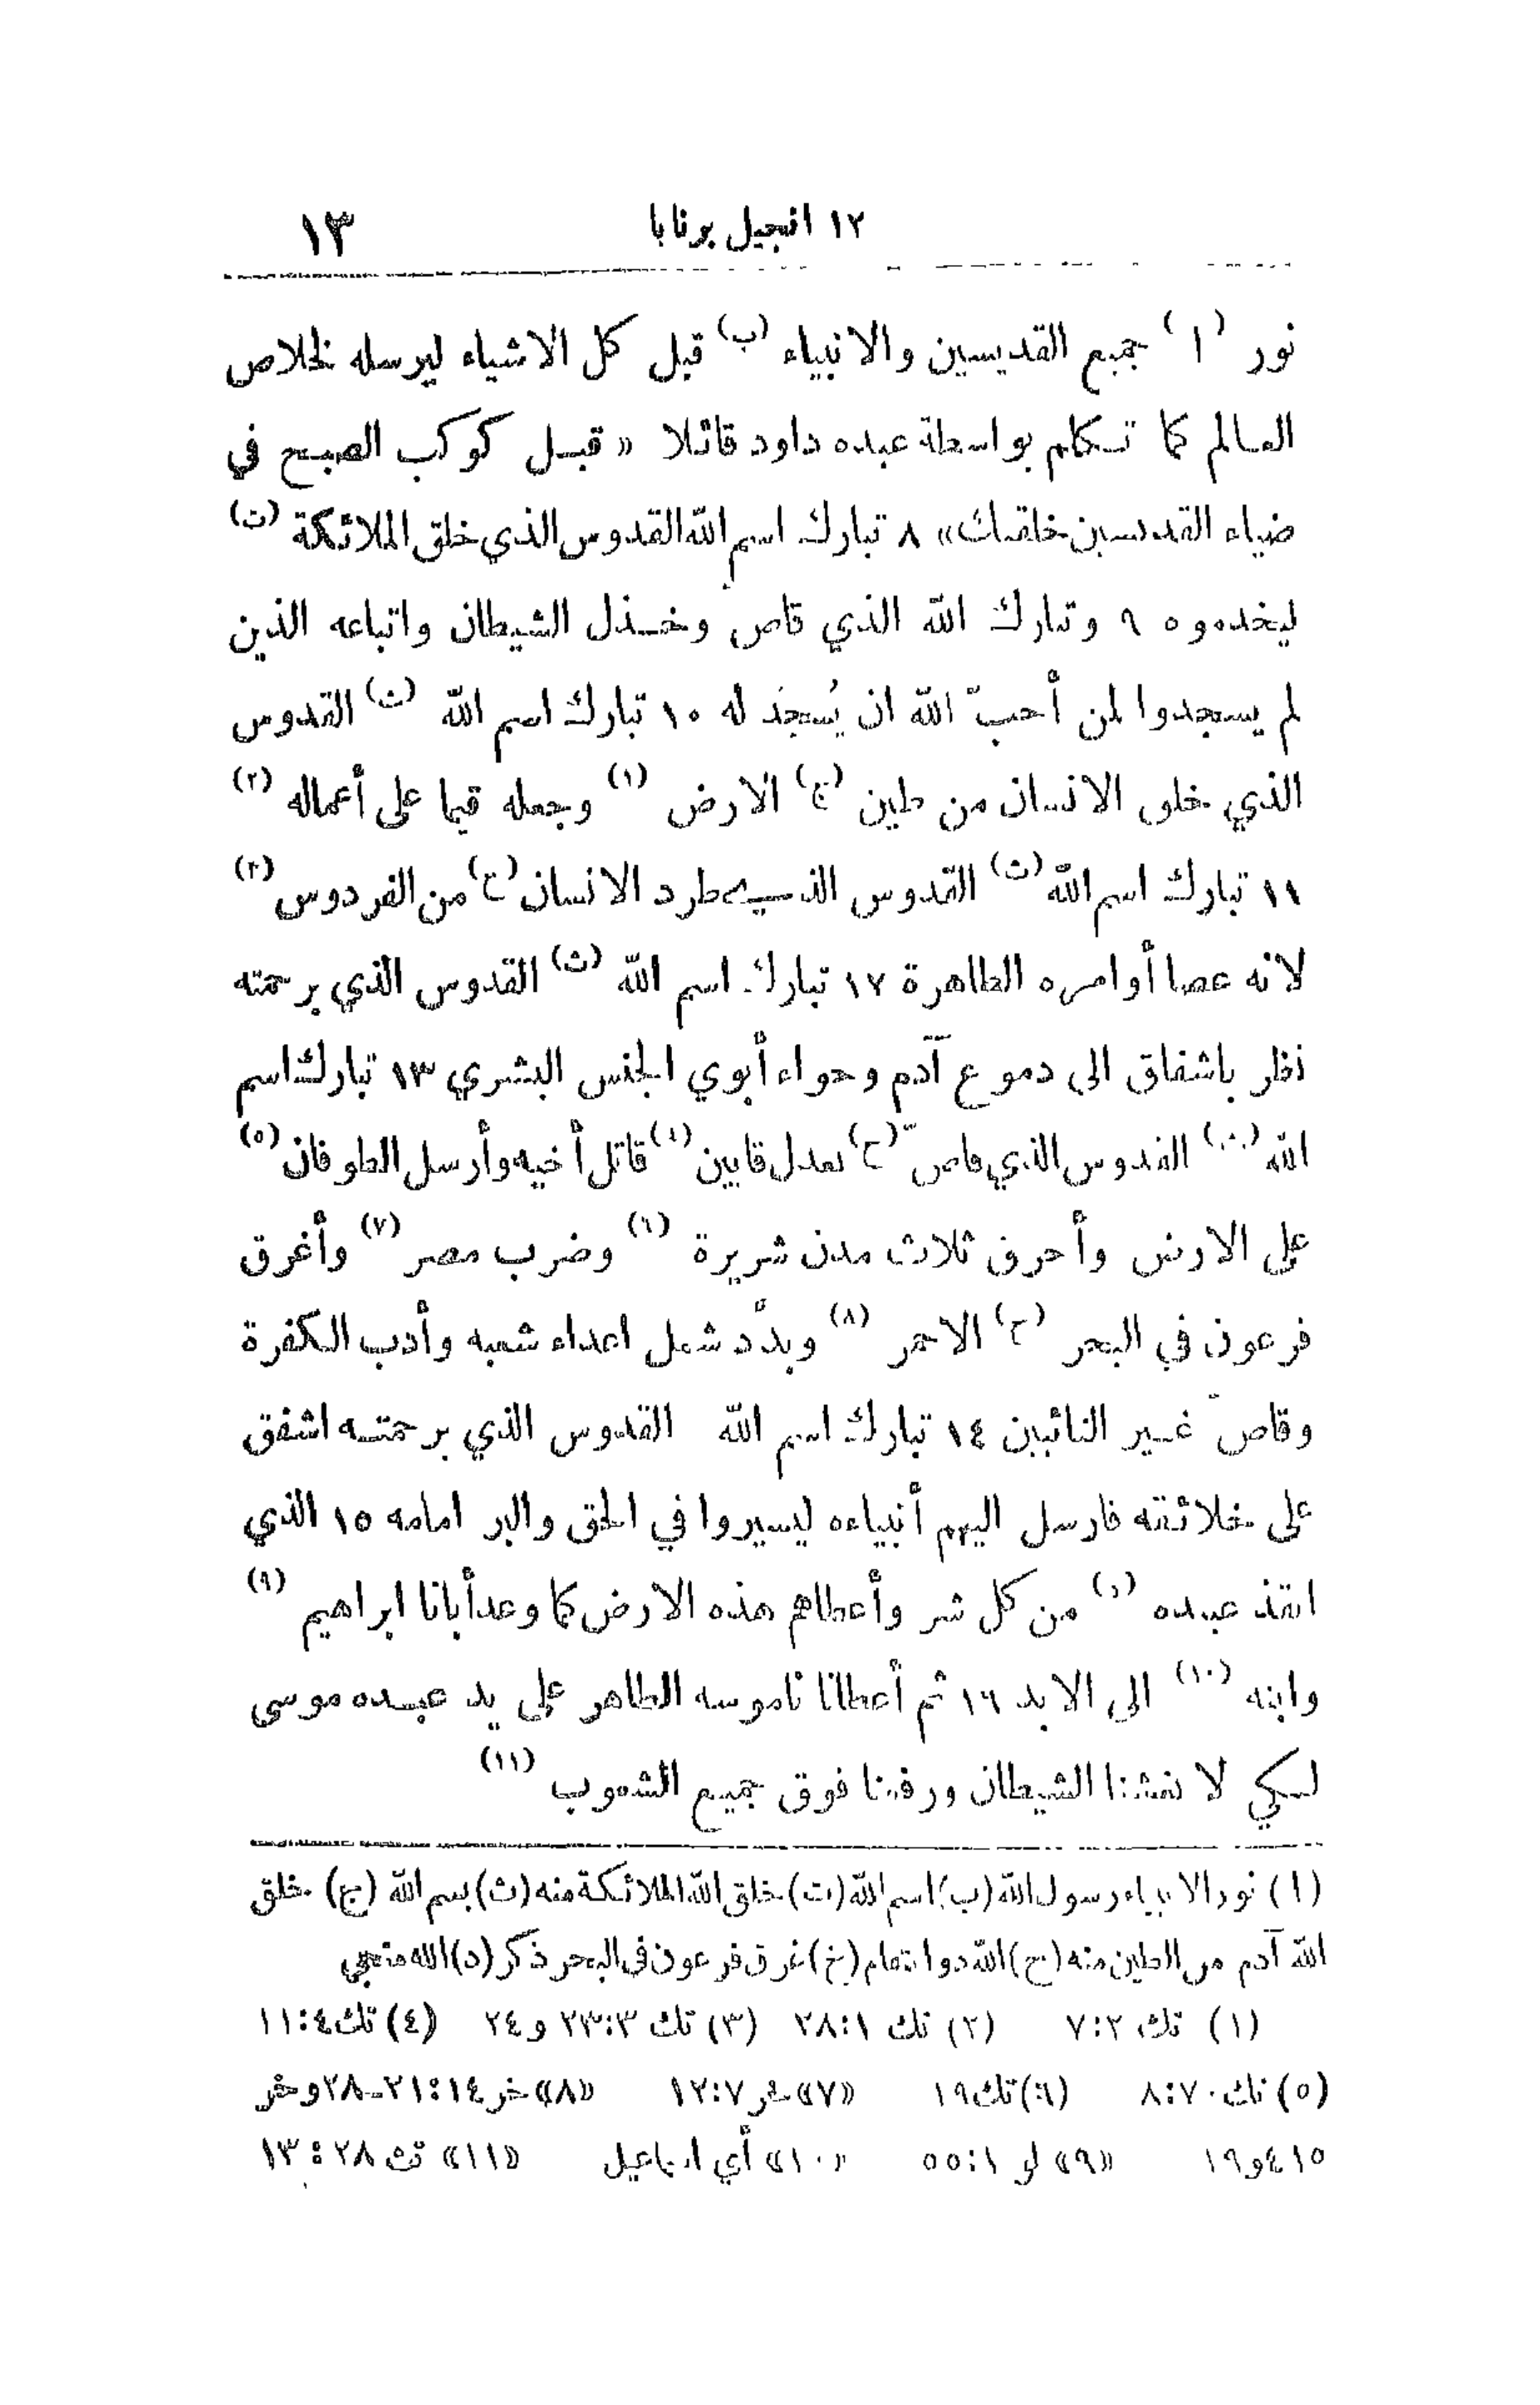 ١٢ انجيل برنابا ١٣
نور (ا) جميع القديسين والانبياء (ب) قبل كل الاشياء ليرسله لخلاص
العالم كما تكلم بواسطة عبده داود قائلا « قبل كوكب الصبح في
ضياء القديسين خلقتك » ٨ تبارك اسم الله القدوس الذي خلق الملائكة (ت)
ليخدموه ٩ وتبارك الله الذي قاص وخذل الشيطان واتباعه الذين
لم يسجدوا لمن أحبّ الله ان يُسجَد له ١٠ تبارك اسم الله (ث) القدوس
الذي خلق الانسان من طين (ج) الارض (١) وجعله قيما على أعماله (٢)
١١ تبارك اسم الله (ث) القدوس الذي طرد الانسان (ح) من الفردوس (٣)
لانه عصا أوامره الطاهرة ١٢ تبارك اسم الله (ث) القدوس الذي برحمته
نظر باشفاق الى دموع آدم وحواء أبوي الجنس البشري ١٣ تبارك اسم
الله (ث) القدوس الذي قاصّ (ح) بعدل قايين (٤) قاتل أخيه وأرسل الطوفان (٥)
على الارض وأحرق ثلاث مدن شريرة (٦) وضرب مصر (٧) وأغرق
فرعون في البحر (خ) الاحمر (٨) وبدَّد شمل اعداء شعبه وأدب الكفرة
وقاصّ غير التائبين ١٤ تبارك اسم الله القدوس الذي برحمته اشفق
على خلائقه فارسل اليهم أنبياءه ليسيروا في الحق والبر امامه ١٥ الذي
انقذ عبيده (د) من كل شر وأعطاهم هذه الارض كما وعد أبانا ابراهيم (٩)
وابنه (١٠) الى الابد ١٦ ثم أعطانا ناموسه الطاهر على يد عبده موسى
لكي لا يغشنا الشيطان ورفعنا فوق جميع الشعوب (١١)
(ا) نور الانبياء رسول الله (ب) اسم الله (ت) خلق الله الملائكة منه (ث) بسم الله (ج) خلق
الله آدم من الطين منه (ح) الله ذو انتقام (خ) غرق فرعون في البحر ذكر (د) الله منجي
(١) تك ٢:٧ (٢) تك ١:٢٨ (٣) تك ٣:٢٣ و٢٤ (٤) تك ٤:١١
(٥) تك ٧:٨ (٦) تك ١٩ «٧» خر ٧:١٢ «٨» خر ١٤:٢١-٢٨ وخر
١٥ ٤ و١٩ «٩» لو ١:٥٥ «١٠» أي اسماعيل «١١» تث ٢٨ : ١٣